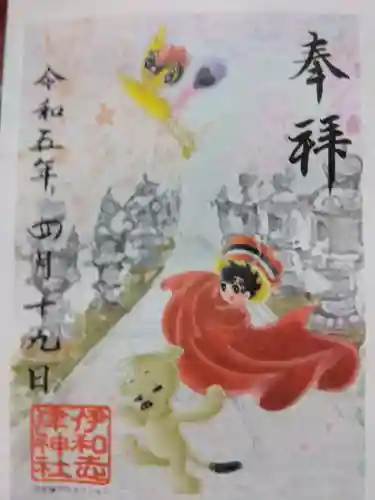 奉拝
令和五年四月十九日
伊和志
津神社